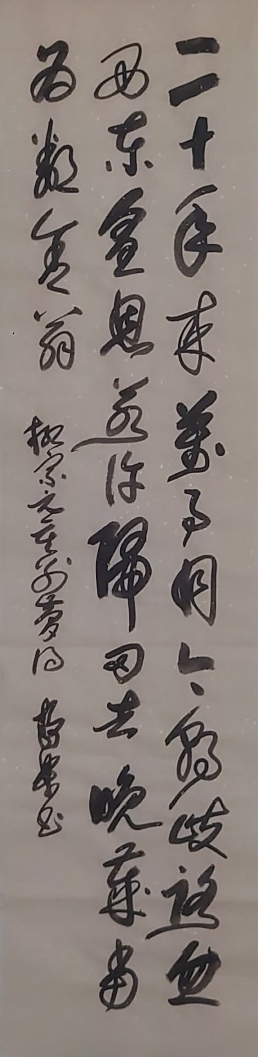 二十年來萬事同今朝歧路忽
西東皇恩若許歸田去晚歲當
為鄰舍翁 柳宗元重別夢得 書